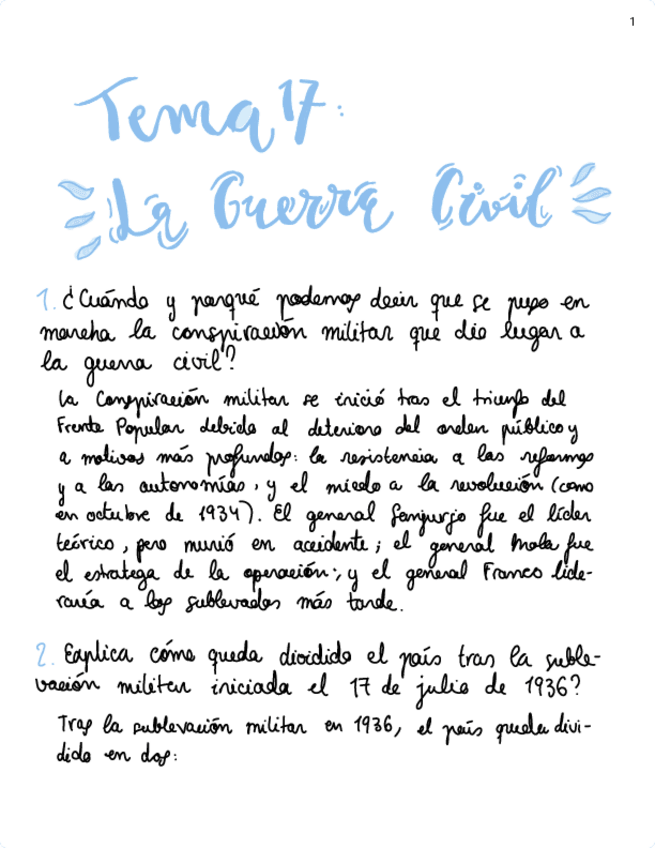 1
Tema 17:
La Guerra Civil
1. ¿Cuándo y porqué podemos decir que se puso en
marcha la conspiración militar que dio lugar a
la guerra civil?
La Conspiración militar se inició tras el triunfo del
Frente Popular debido al deterioro del orden público y
a motivos más profundos: la resistencia a las reformas
y a las autonomías, y el miedo a la revolución (como
en octubre de 1934). El general Sanjurjo fue el líder
teórico, pero murió en accidente; el general Mola fue
el estratega de la operación; y el general Franco lide-
raría a los sublevados más tarde.
2. Explica cómo queda dividido el país tras la suble-
vación militar iniciada el 17 de julio de 1936?
Tras la sublevación militar en 1936, el país queda divi-
dido en dos: